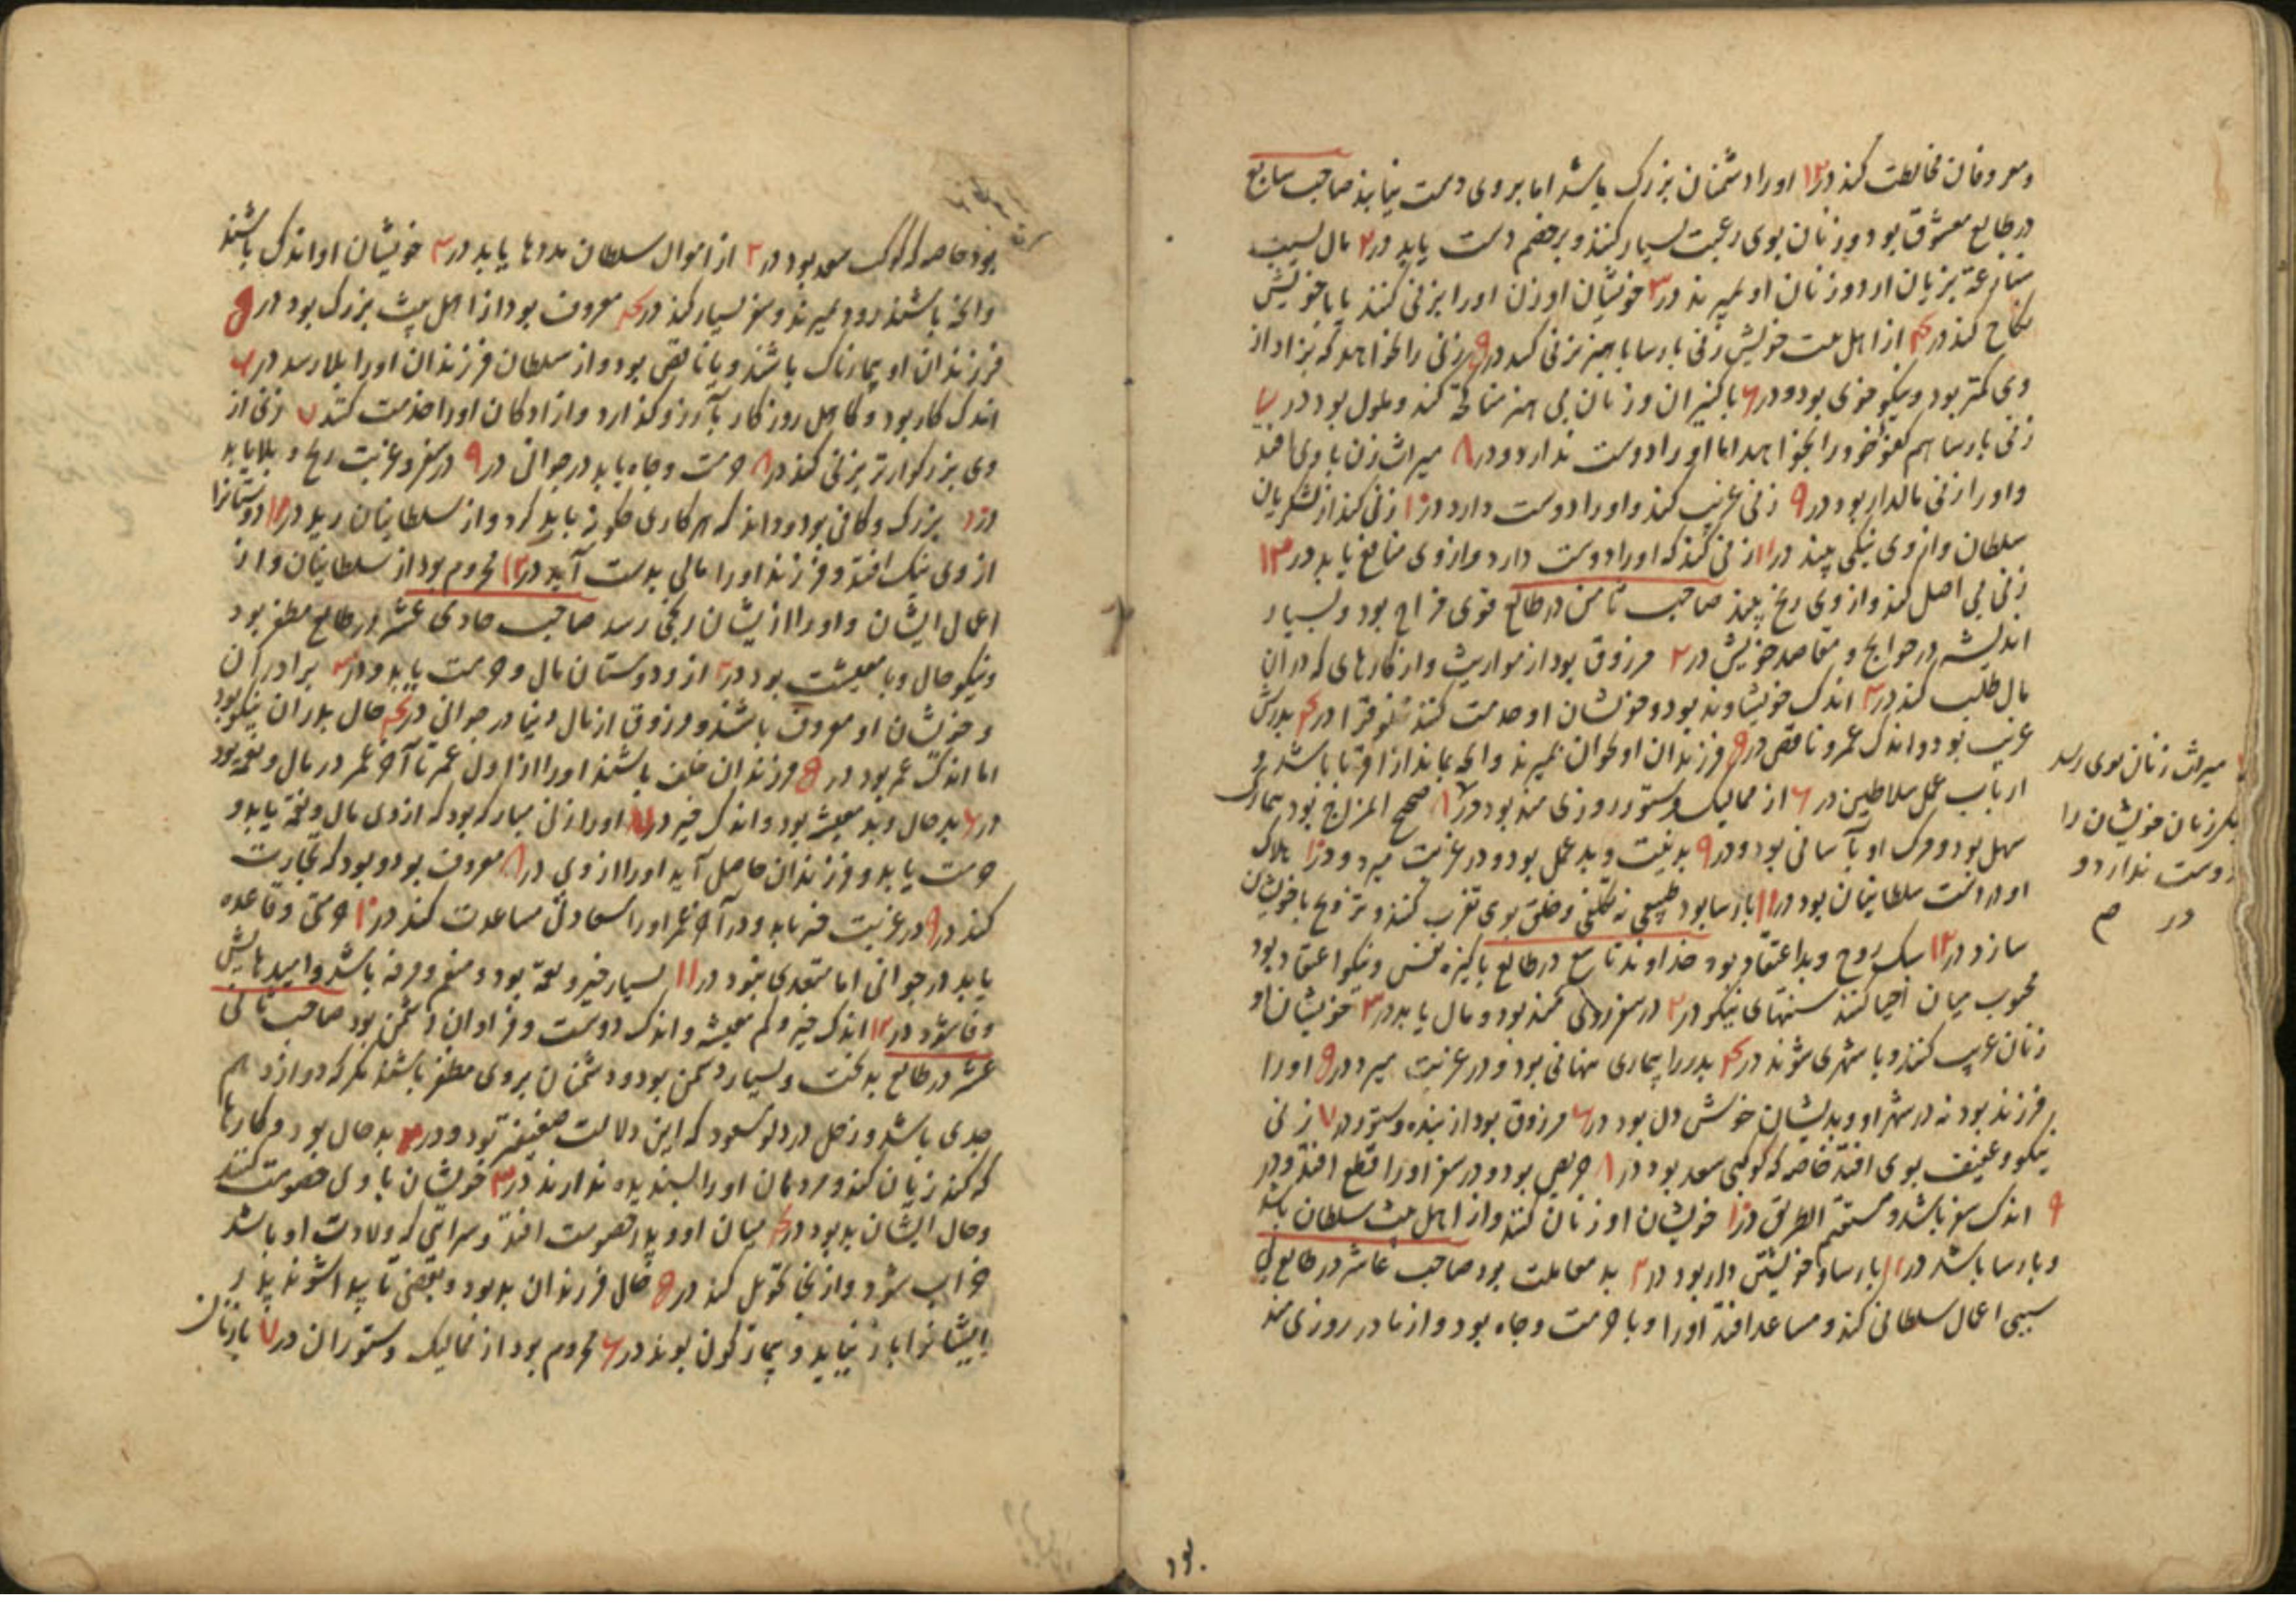 ومعروفان مخالطت کند در ۱۲ اورا دشمنان بزرک باشد اما بروی دست نیابند صاحب سابع
در طالع معشوق بود و زنان بوی رغبت بسیار کنند و بر خصم دست یابد در ۲ مال بسبب
بزیان ارد و زنان او بمیرند در ۳ خویشان او زن اورا بزنی کنند یا با خویش
نکاح کند در ۴ از اهل بیت خویش زنی پارسا با هنر بزنی کند در ۵ زنی را بخواهد که بزاد از
وی کمتر بود و نیکو خوی بود و در ۶ با کنیزان و زنان بی هنر مناکحة کند و ملول بود در ۷
زنی پارسا هم کفو خود را بخواهد اما او را دوست ندارد و در ۸ میراث زن با وی افتد
واورا زنی مالدار بود در ۹ زنی غریب کند و اورا دوست دارد در ۱۰ زنی کند از لشکریان
سلطان و از وی نیکی بیند در ۱۱ زنی کند که اورا دوست دارد و از وی منافع یابد در ۱۲
زنی بی اصل کند و از وی رنج بیند صاحب ثامن در طالع قوی مزاج بود و بسیار
اندیشه در حوایج و مقاصد خویش در ۲ مرزوق بود از مواریث و از کارهای که در ان
مال طلب کند در ۳ اندک خویشاوند بود و خویشان او خدمت کنند در ۴ پدرش
غریب بود و اندک عمر و ناقص در ۵ فرزندان او بمیرند و انچه بماند از اقربا باشد و
ارباب عمل سلاطین در ۶ از ممالیک و ستور روزی مند بود در ۷ صحیح المزاج بود بیمارک
سهل بود و مرک او بآسانی بود و در ۹ بدنیت و بد عمل بود و در غربت میرد و در ۱۰ هلاک
او در دست سلطانیان بود در ۱۱ پارسا بود طبیعی نه تکلفی و خلق بوی تقرب کنند و تزویج با خویشان
سازد در ۱۲ سبک روح و بد اعتقاد بود خداوند تاسع در طالع پاکیزه نفس و نیکو اعتقاد بود
محبوب میان احیا کنند سنتهای نیکو در ۲ در سفر روزی مند بود و مال یابد در ۳ خویشان او
زنان غریب کنند و با شهری شوند در ۴ پدر را بیماری نهانی بود و در غربت میرد در ۵ اورا
فرزند بود نه در شهر او و بدیشان خوش دل بود در ۶ مرزوق بود از بنده و ستور در ۷ زنی
نیکو و عفیف بوی افتد خاصه که کوکبی سعد بود در ۸ حریص بود و در سفر اورا قطع افتد و در
۹ اندک سفر باشد و مستقیم الطریق در ۱۰ خویشان او زنان کنند و از اهل بیت سلطان باشد
و پارسا باشد در ۱۱ پارسا و خویشتن دار بود در ۱۲ بد معاملت بود صاحب عاشر در طالع بی
سببی اعمال سلطانی کند و مساعد افتد اورا و با حرمت و جاه بود و از مادر روزی مند
میراث زنان بوی رسد
زنان خویشان را
دوست ندارد و
در
بود
بود خاصه که کوکب سعد بود در ۲ از اموال سلطان مددها یابد در ۳ خویشان او اندک باشند
وانچه باشند زود بمیرند و سفر بسیار کند در ۴ معروف بود از اهل بیت بزرک بود در ۵
فرزندان او بیمارناک باشند و یا ناقص بود و از سلطان فرزندان اورا بلا رسد در ۶
اندک کار بود و کاهل روزکار بآرزو کذارد و ازادکان اورا خدمت کنند ۷ زنی از
وی بزرکوارتر بزنی کند در ۸ حرمت و جاه یابد در جوانی در ۹ در سفر و غربت رنج و بلا یابد
در ۱۰ بزرک و کافی بود و داند که هر کاری چکونه باید کرد و از سلطانیان در ۱۱ دوستانرا
از وی نیک افتد و فرزند اورا مالی بدست آید در ۱۲ محروم بود از سلطانیان و از
اعمال ایشان و اورا از یشان رنجی رسد صاحب حادی عشر در طالع مظفر بود
ونیکو حال و با معیشت بود در ۲ از دوستان مال و حرمت یابد و در ۳ برادران
و خویشان او معروف باشند و مرزوق از مال دنیا در جوانی در ۴ حال پدران نیکو بود
اما اندک عمر بود در ۵ فرزندان خلف باشند اورا از اول عمر تا آخر عمر در مال و نعمة بود
در ۶ بد حال و بد معیشة بود و اندک خیر در ۷ اورا زنی مبارک بود که از وی مال و نعمة یابد و
حرمت یابد و فرزندان حاصل آید اورا از وی در ۸ معروف بود و بود که تجارت
کند در ۹ در غربت فر یابد و در آخر عمر اورا سعادت مساعدت کند در ۱۰ حرمتی و قاعده
یابد در جوانی اما متعدی نبود در ۱۱ بسیار خیر و نعمة بود و منعم و مرفه باشد و امیدهایش
وفا شود در ۱۲ اندک خیر و کم معیشة و اندک دوست و فراوان دشمن بود صاحب ثانی
عشر در طالع بدبخت و بسیار دشمن بود و دشمنان بروی مظفر باشند مکر که دوازدهم
جدی باشد و زحل در دلو مسعود که این دلالت ضعیفتر بود و در ۲ بد حال بود و هر کارها
که کند زیان کند و مردمان اورا پسندیده ندارند در ۳ خویشان با وی خصومت کنند
وحال ایشان بد بود در ۴ میان او و پدر خصومت افتد و سرائی که ولادت او باشد
خراب شود و از انجا تحویل کند در ۵ حال فرزندان بد بود و بعضی نا پیدا شوند پدر
ایشانرا باز نیابد و بیمار کون بوند در ۶ محروم بود از ممالیک و ستوران در ۷ با زنان